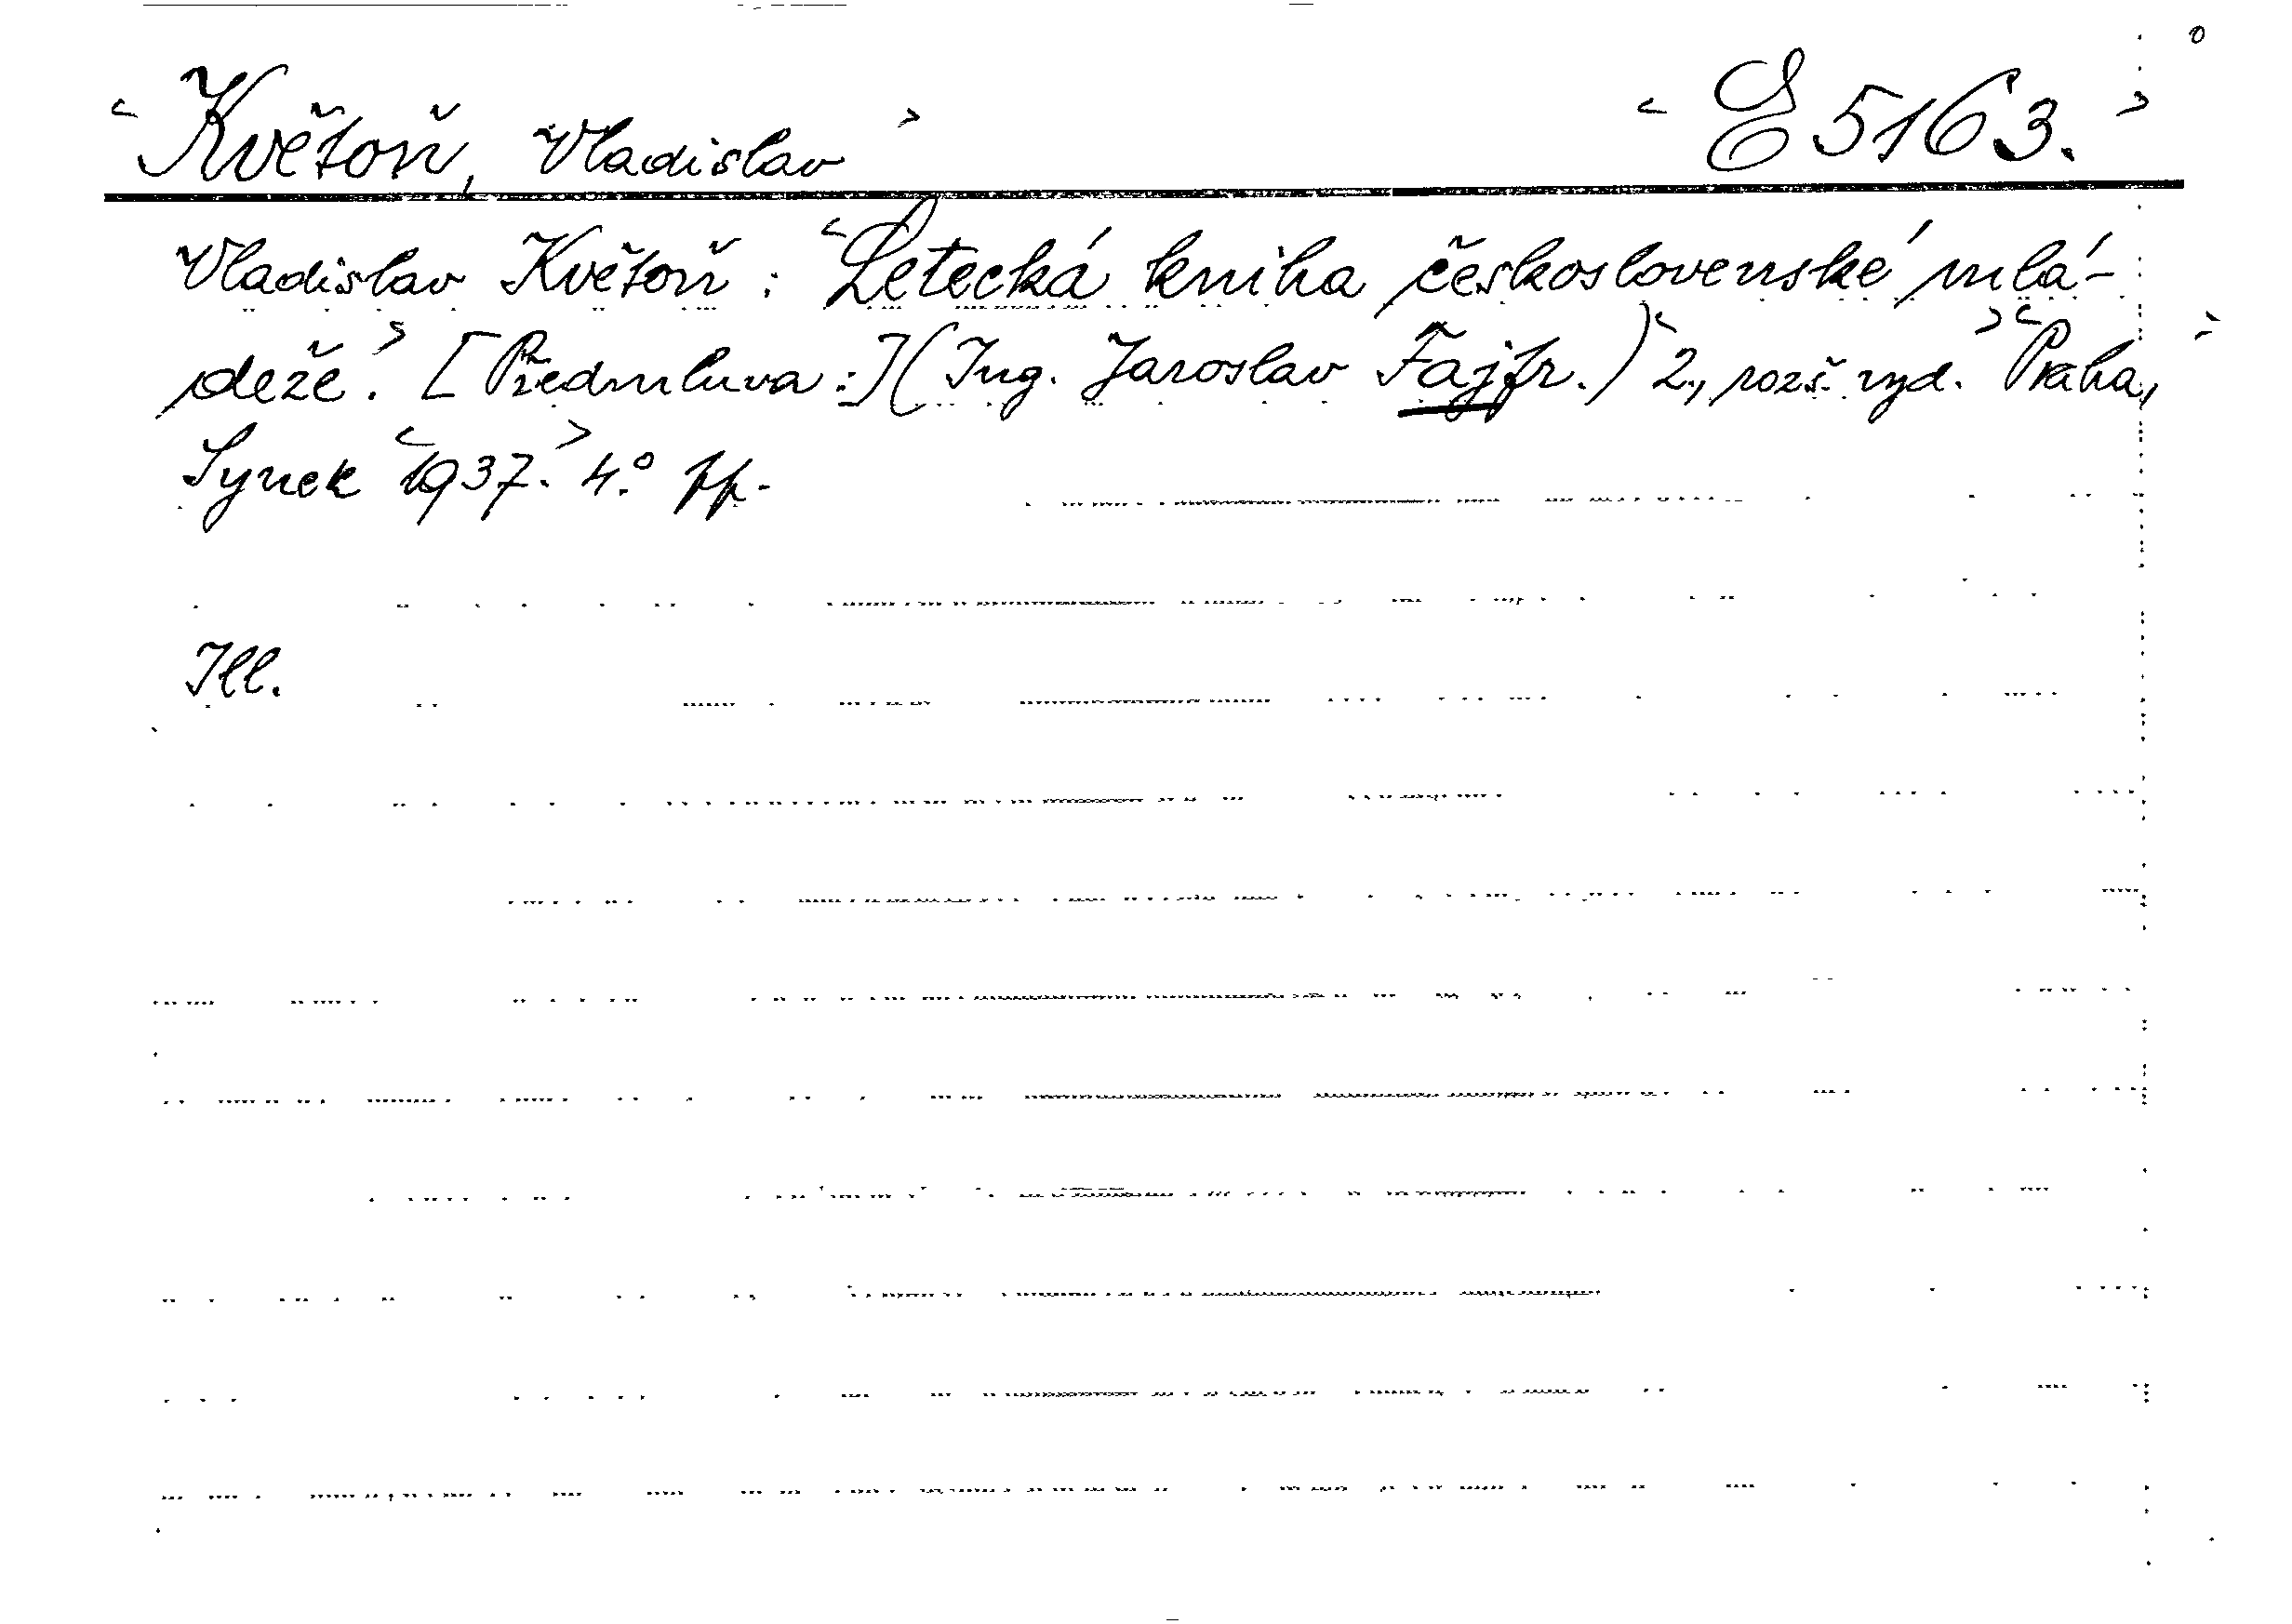 <Květoň, Vladislav> <E 5163.>
Vladislav Květoň: <Letecká kniha československé mlá-
deže.> [Předmluva:] (Ing. Jaroslav Fajfr.) <2., rozš. vyd.> <Praha,>
Synek <1937.> 4.° pp.
Ill.